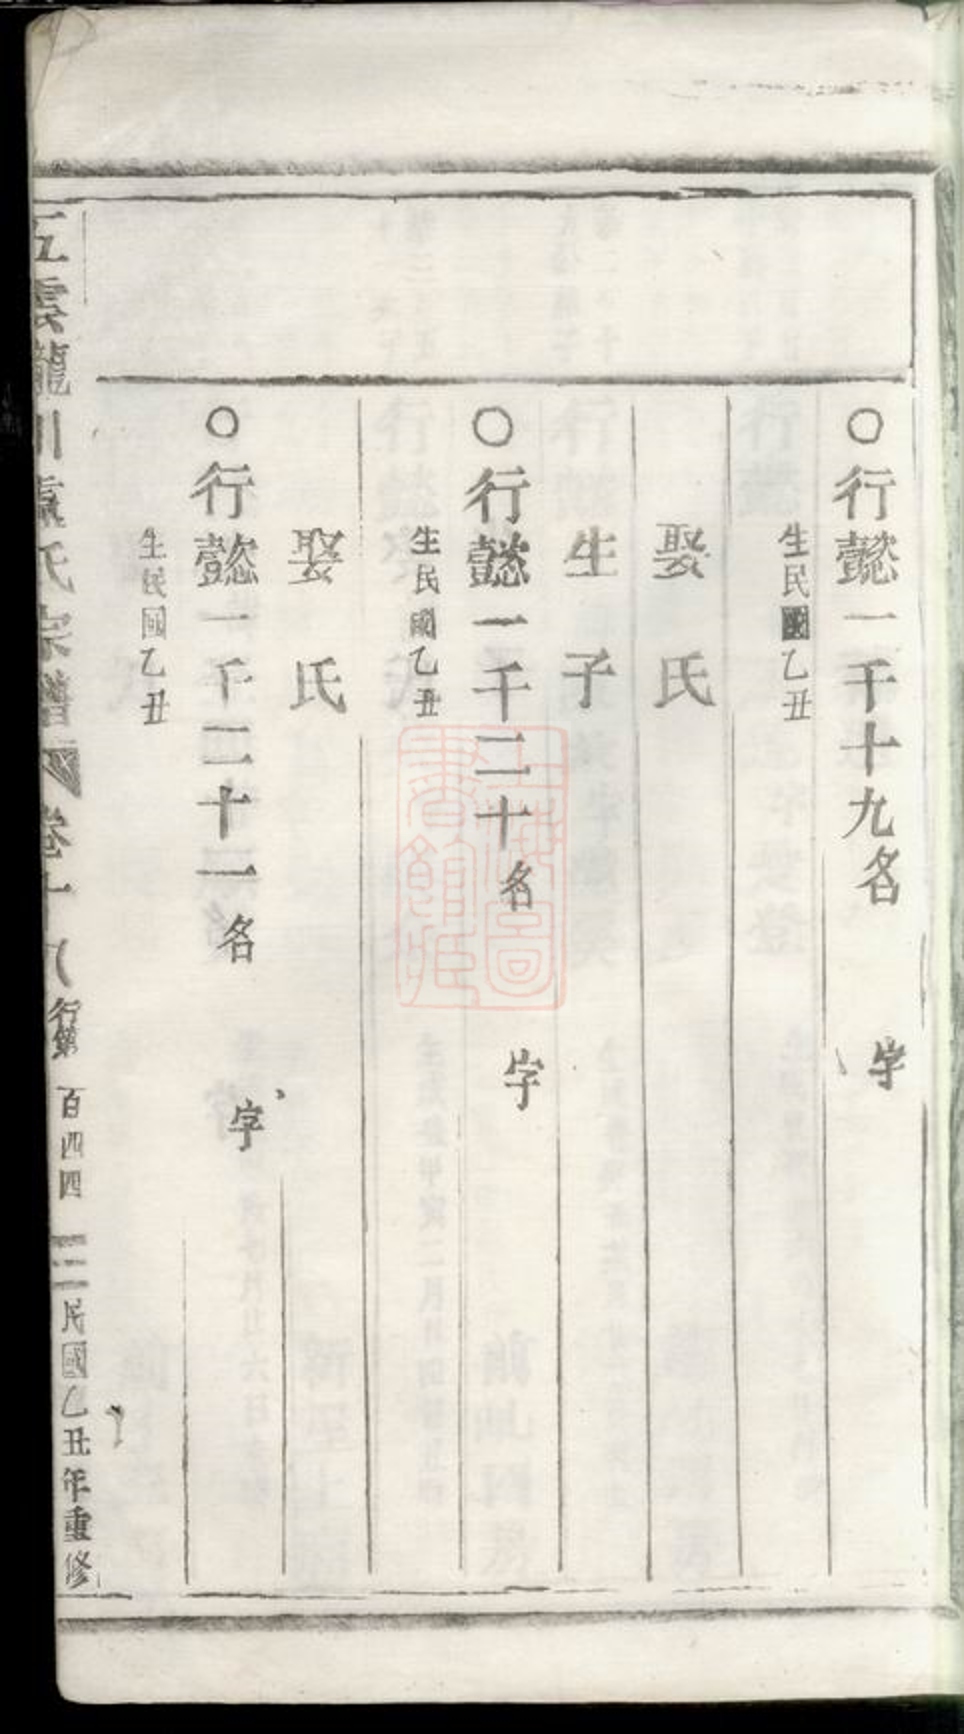 ○行懿一千十九名 字
生民國乙丑
娶 氏
生 子
○行懿一千二十名 字
生民國乙丑
娶 氏
○行懿一千二十一名 字
生民國乙丑
五雲龍川虞氏宗譜 卷十八 行第 百四四 民國乙丑年重修
上海圖書館藏